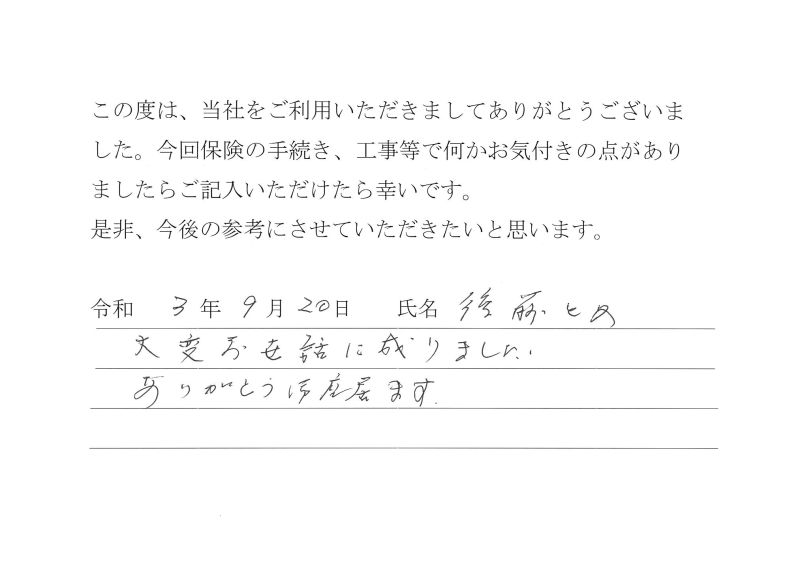 この度は、当社をご利用いただきましてありがとうございま
した。今回保険の手続き、工事等で何かお気付きの点があり
ましたらご記入いただけたら幸いです。
是非、今後の参考にさせていただきたいと思います。
令和 3年 9月 20日 氏名 後藤とめ
大変お世話に成りました。
ありがとう御座居ます。